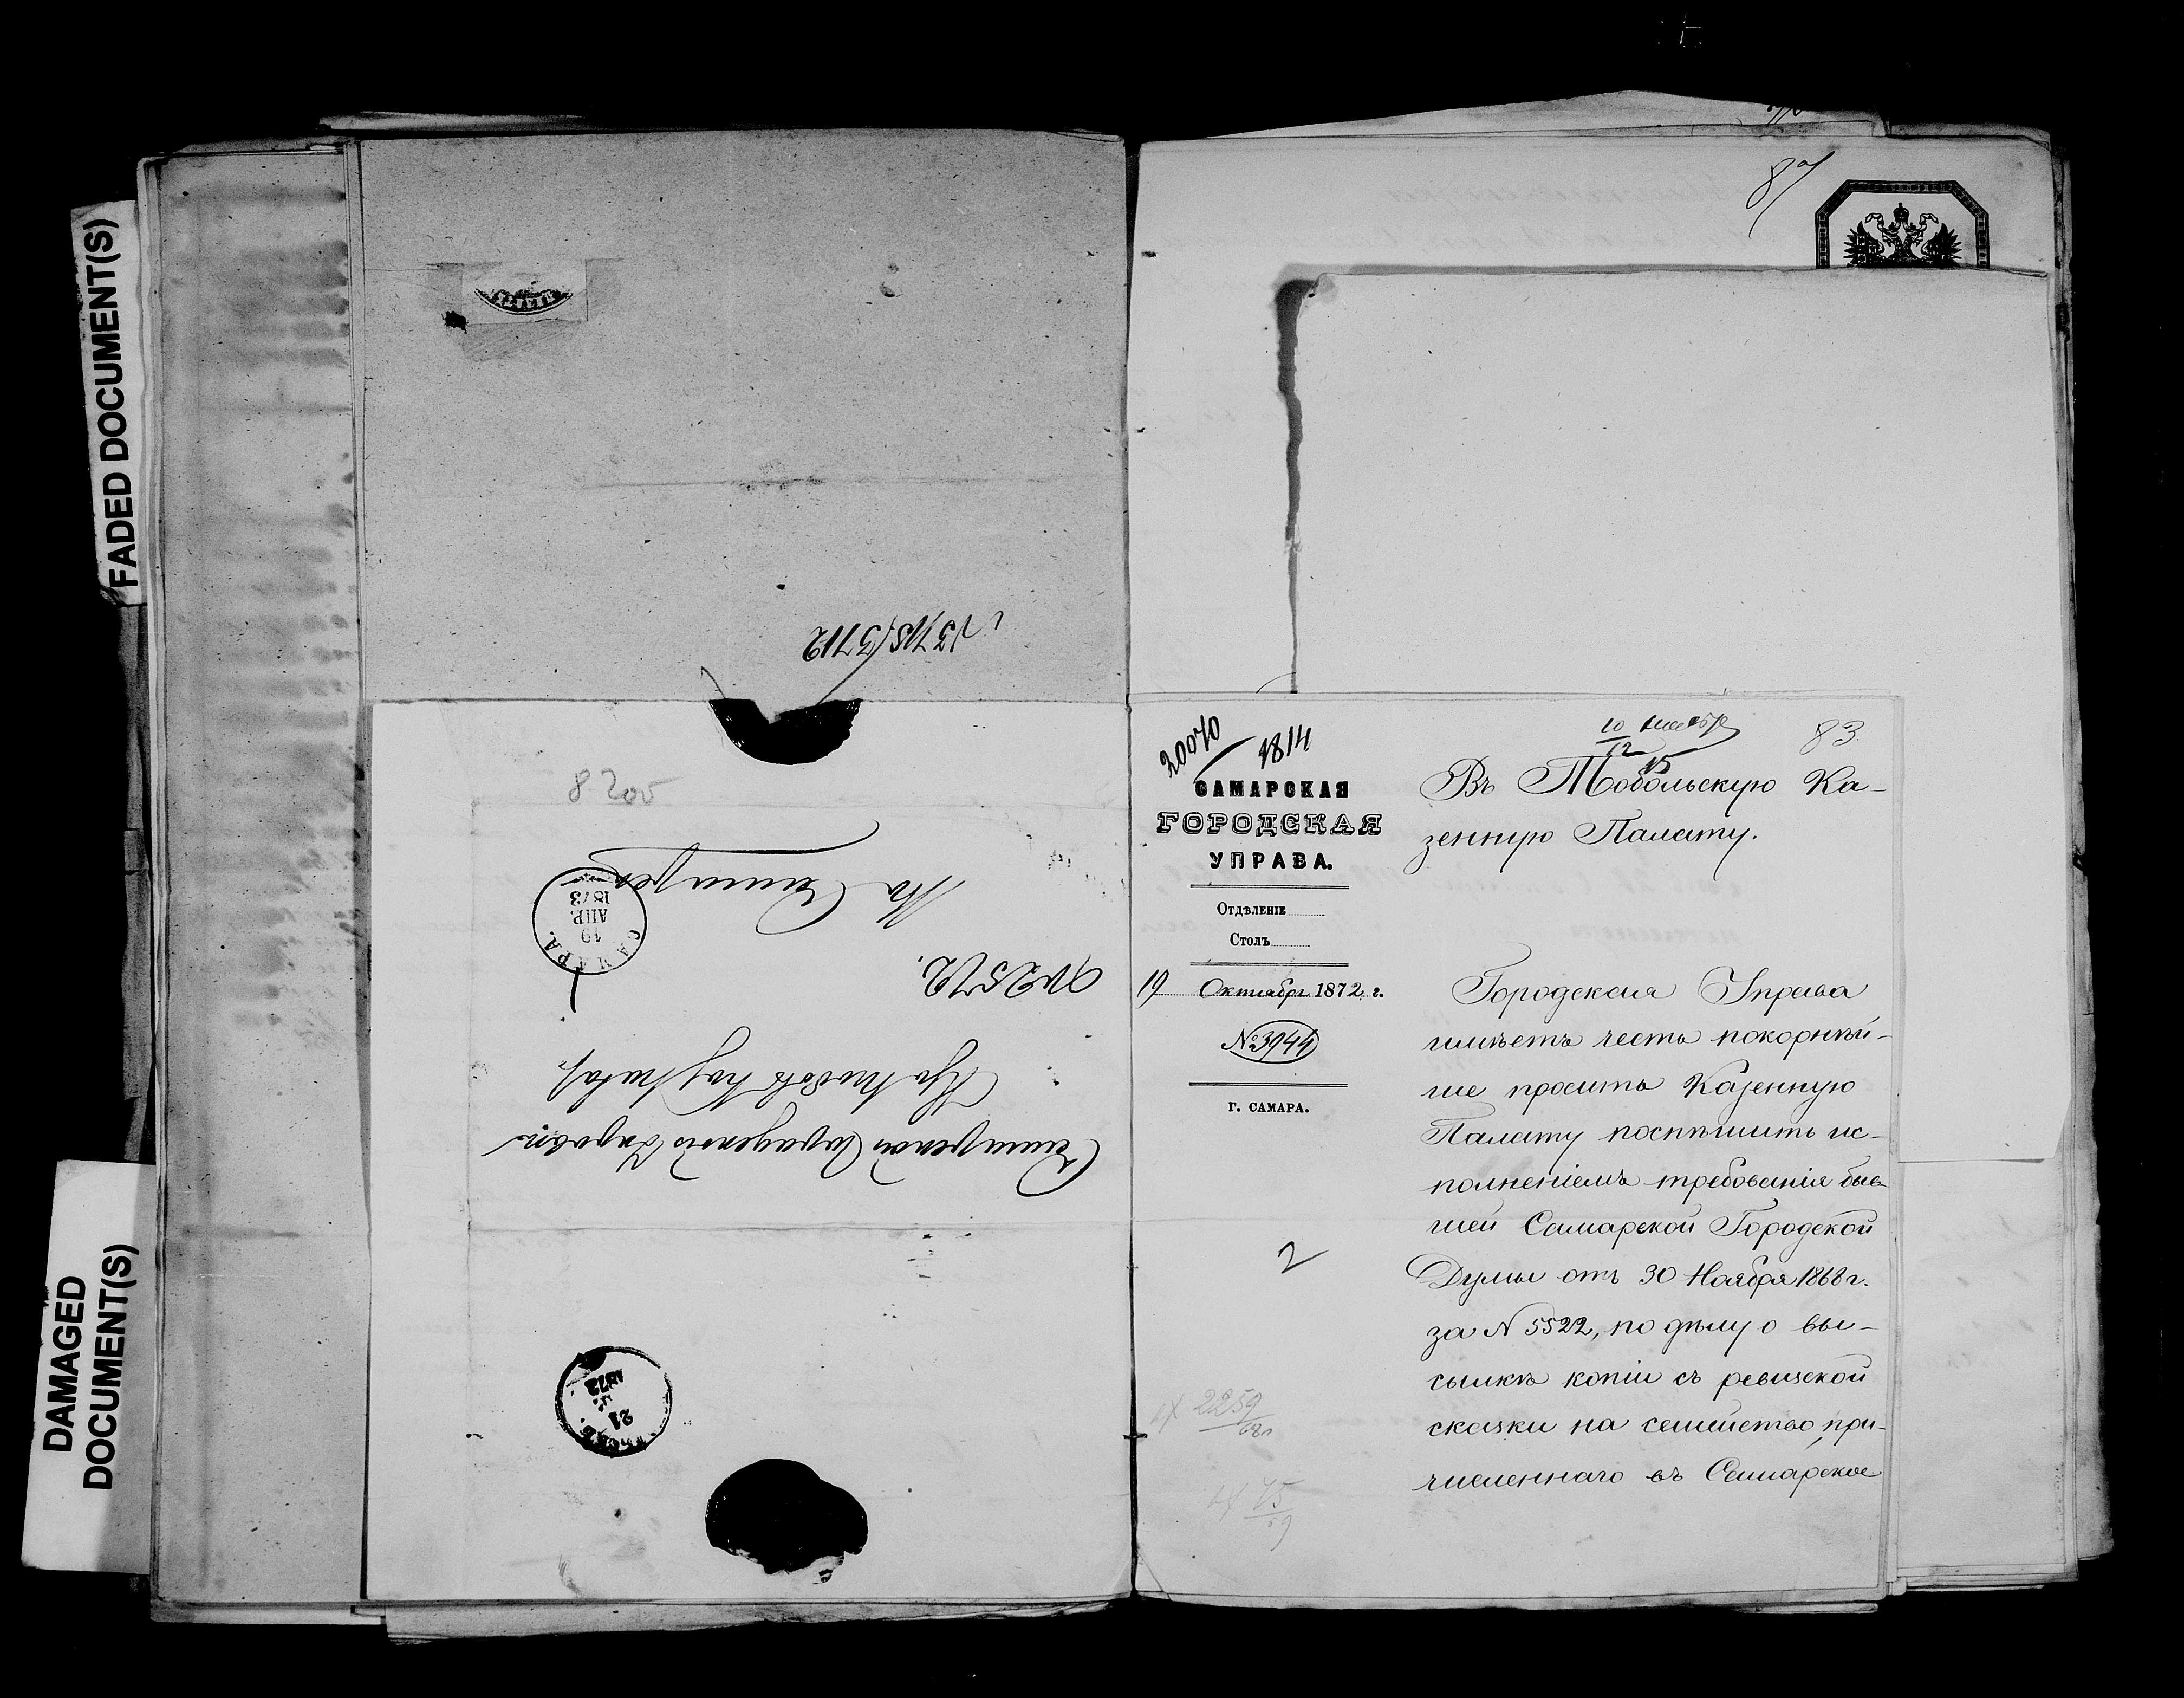 FADED DOCUMENT(S)
DAMAGED
DOCUMENT(S)
87
8200
Въ Самару
САМАРА.
19
АПР.
1873
№2572.
Самарской Городской Управы
21
1873
83.
20070
1814
10
12
САМАРСКАЯ
ГОРОДСКАЯ
УПРАВА.
Отдѣленіе
Столъ
19 Октября 1872 г.
№3944
Г. САМАРА.
2
2259
68
75
69
Въ Тобольскую Ка-
зенную Палату.
Городская Управа
имѣетъ честь покорнѣй-
ше просить Казенную
Палату поспѣшить ис-
полненіемъ требованія быв-
шей Самарской Городской
Думы отъ 30 Ноября 1868 г.
за № 5522, по дѣлу о вы-
сылкѣ копіи съ ревизской
сказки на семейство, при-
численнаго въ Самарское